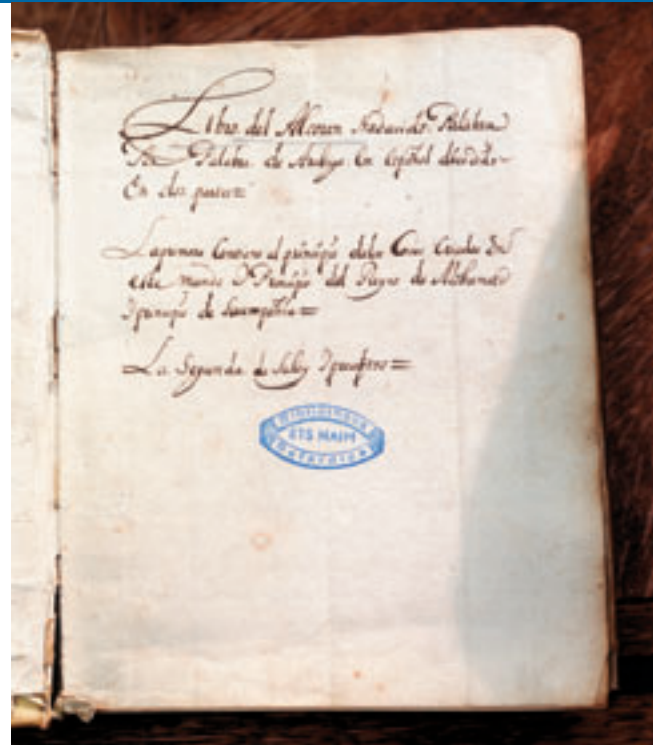 Libro del Alcoran traducido Palabra
Por Palabra de Arabigo En español dividido
En dos partes =
La primera Contiene el principio delas Cosas Criadas Del
este mundo Y Principio del Reyno de Mohamet
Y principio de su
La Segunda de su ley Y
Bibliotheca
ETS HAIM